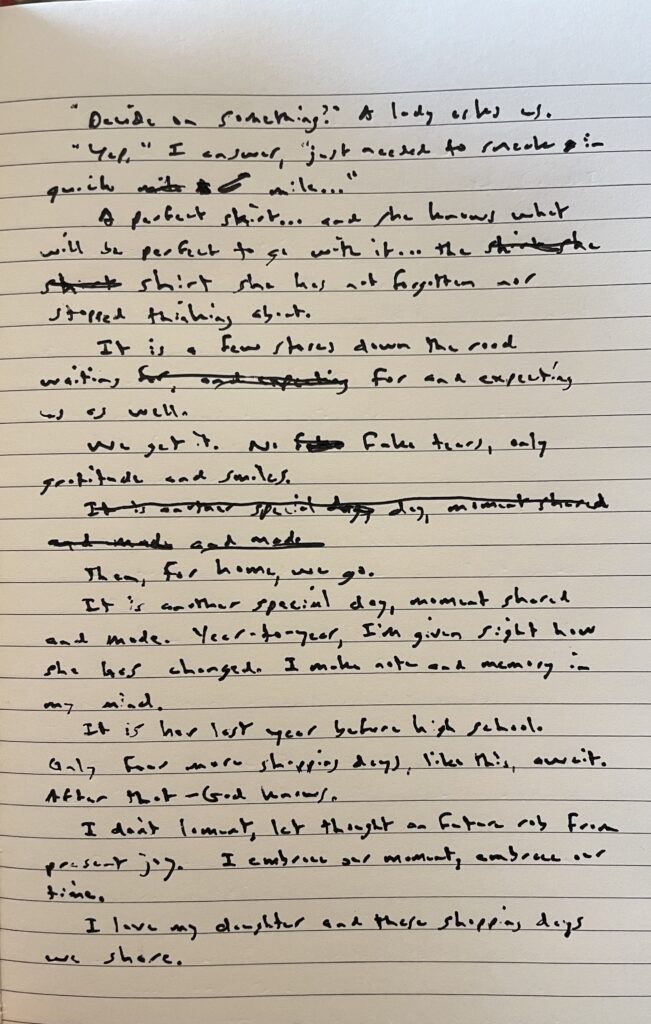 "Decide on something?" A lady asks us.
"Yep," I answer, "just needed to sneak in
quick mile..."
A perfect skirt... and she knows what
will be perfect to go with it... the she
shirt she has not forgotten nor
stopped thinking about.
It is a few stores down the road
waiting for, and expecting for and expecting
us as well.
We get it. No fake tears, only
gratitude and smiles.
It is another special day, day, moment shared
and made and made
Then, for home, we go.
It is another special day, moment shared
and made. Year-to-year, I'm given sight how
she has changed. I make note and memory in
my mind.
It is her last year before high school.
Only four more shopping days, like this, await.
After that - God knows.
I don't lament, let thought on future rob from
present joy. I embrace our moment, embrace our
time.
I love my daughter and these shopping days
we share.